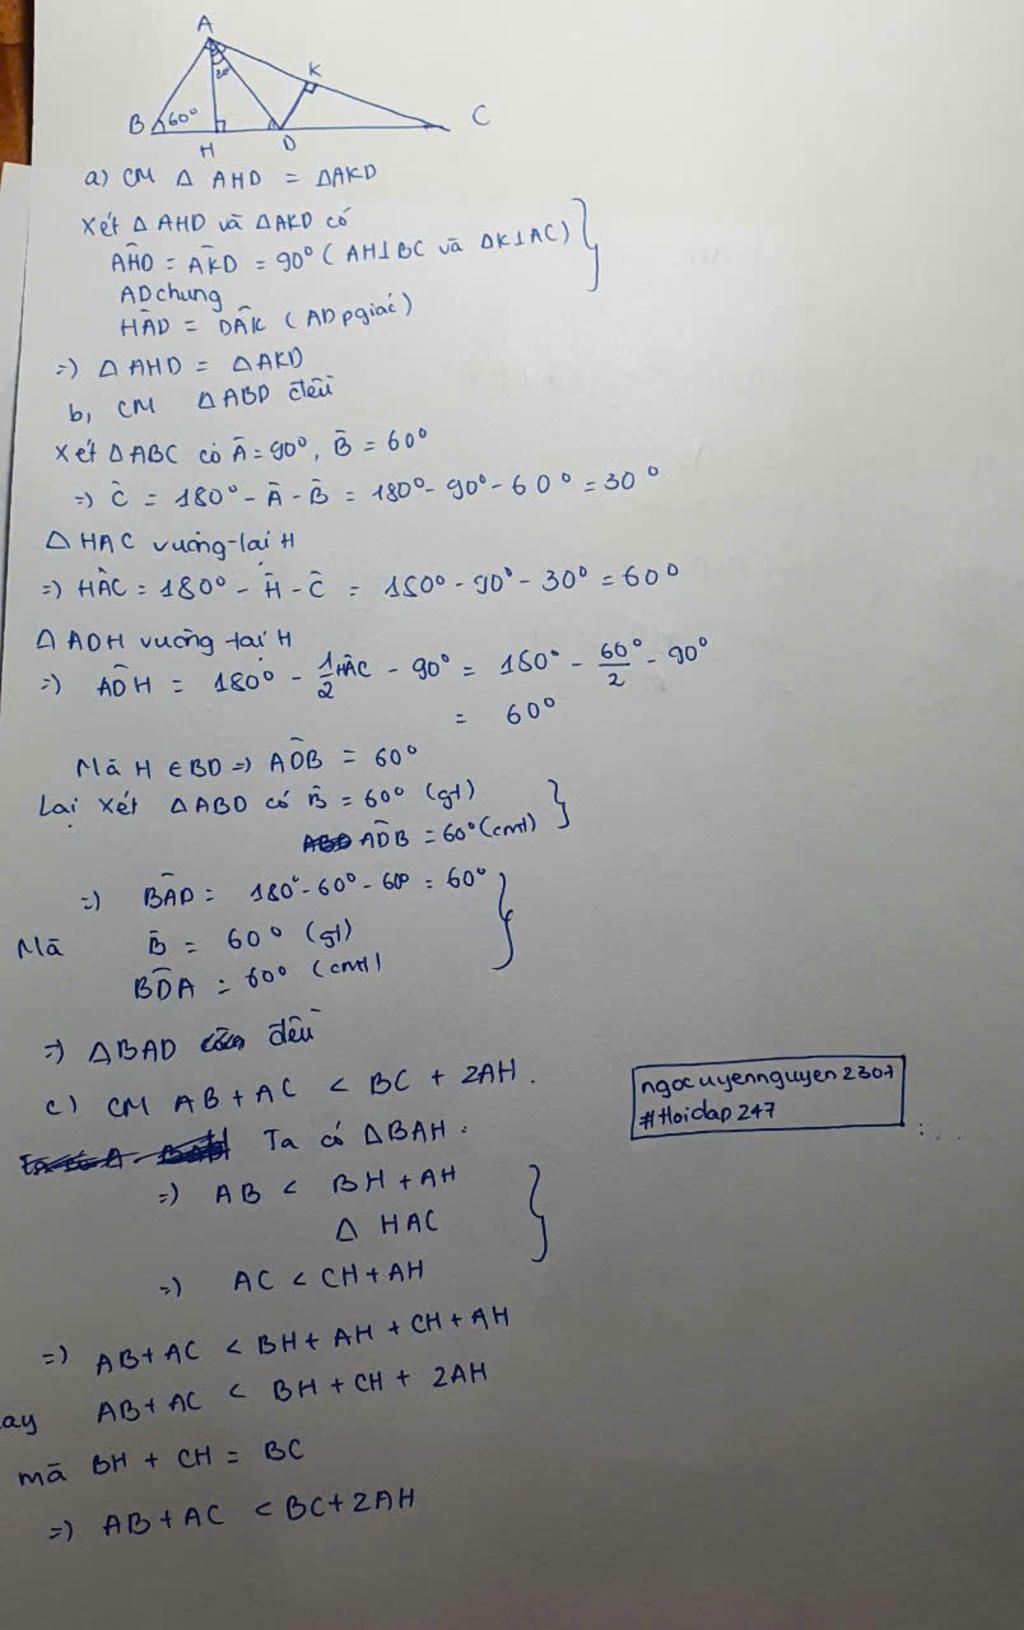 A
30°
K
B 60° C
H D
a) CM Δ AHD = ΔAKD
Xét Δ AHD và ΔAKD có
AĤD = AK̂D = 90° ( AH⊥BC và DK⊥AC) }
AD chung
HÂD = DÂK ( AD pgiác)
=) Δ AHD = ΔAKD
b, CM ΔABD đều
Xét ΔABC có Â = 90°, B̂ = 60°
=) Ĉ = 180° - Â - B̂ = 180° - 90° - 60° = 30°
Δ HAC vuông tại H
=) HÂC = 180° - Ĥ - Ĉ = 180° - 90° - 30° = 60°
Δ ADH vuông tại H
=) AD̂H = 180° - 1/2 HÂC - 90° = 180° - 60°/2 - 90°
= 60°
Mà H ∈ BD =) AD̂B = 60°
Lại xét ΔABD có B̂ = 60° (gt) }
AD̂B = 60° (cmt)
=) BÂD = 180° - 60° - 60° = 60° }
Mà B̂ = 60° (gt)
BD̂A = 60° (cmt)
=) ΔBAD đều
c) CM AB + AC < BC + 2AH.
Ta có ΔBAH :
=) AB < BH + AH }
Δ HAC
=) AC < CH + AH
=) AB + AC < BH + AH + CH + AH
ay AB + AC < BH + CH + 2AH
mà BH + CH = BC
=) AB + AC < BC + 2AH
ngocuyennguyen2307
#Hoidap247